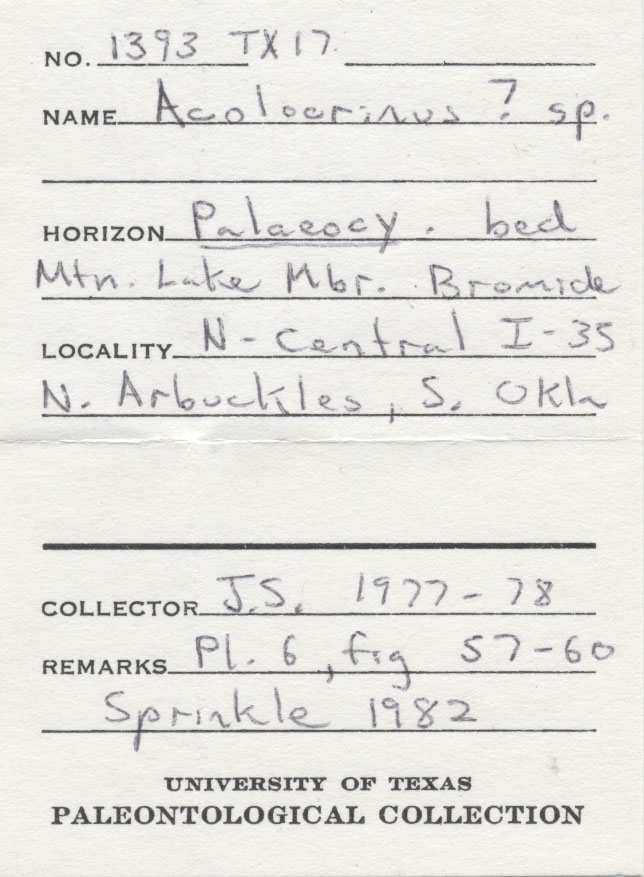 NO. 1393 TX17
NAME Acolocrinus ? sp.
HORIZON Palaeocy. bed
Mtn. Lake Mbr. Bromide
LOCALITY N-Central I-35
N. Arbuckles, S. Okla
COLLECTOR J.S. 1977-78
REMARKS Pl. 6, fig 57-60
Sprinkle 1982
UNIVERSITY OF TEXAS
PALEONTOLOGICAL COLLECTION